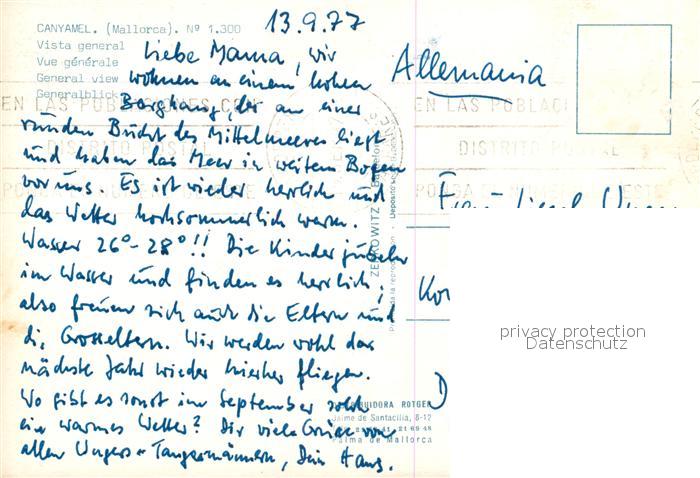 CANYAMEL. (Mallorca). Nº 1.300
Vista general
Vue générale
General view
Generalblick
13.9.77
Liebe Mama, wir
wohnen an einem hohen
Berghang, der an einer
runden Bucht des Mittelmeeres liegt
und haben das Meer in weitem Bogen
vor uns. Es ist wieder herrlich und
das Wetter hochsommerlich warm.
Wasser 26°-28°!! Die Kinder jubeln
im Wasser und finden es herrlich.
also freuen sich auch die Eltern und
die Grosseltern. Wir werden wohl das
nächste Jahr wieder hierher fliegen.
Wo gibt es sonst im September solch
ein warmes Wetter? Dir viele Grüße von
allen Ungers - Tangermännern, Dein Hans.
Allemania
EN LAS POBLACIONES CON
DISTRITO POSTAL
EN LAS POBLACI
DISTRITO POSTAL
ZERKOWITZ - Barcelona
Prohibida la reproducción
Frau
Ko
D
DISTRIBUIDORA ROTGER
Jaime de Santacilia, 8-12
21 69 48
Palma de Mallorca
privacy protection
Datenschutz